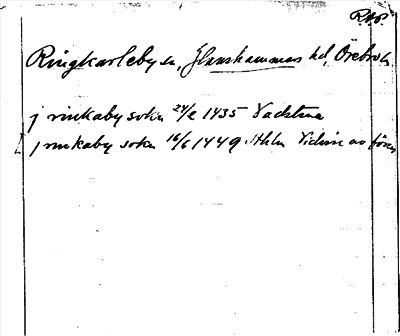 RAp.
Ringkarleby sn, Glanshammars hd, Örebro l.
j rinkaby sokn 24/2 1435 Vadstena
[ j rinkaby sokn 16/6 1449 Sthlm Vidim av föreg